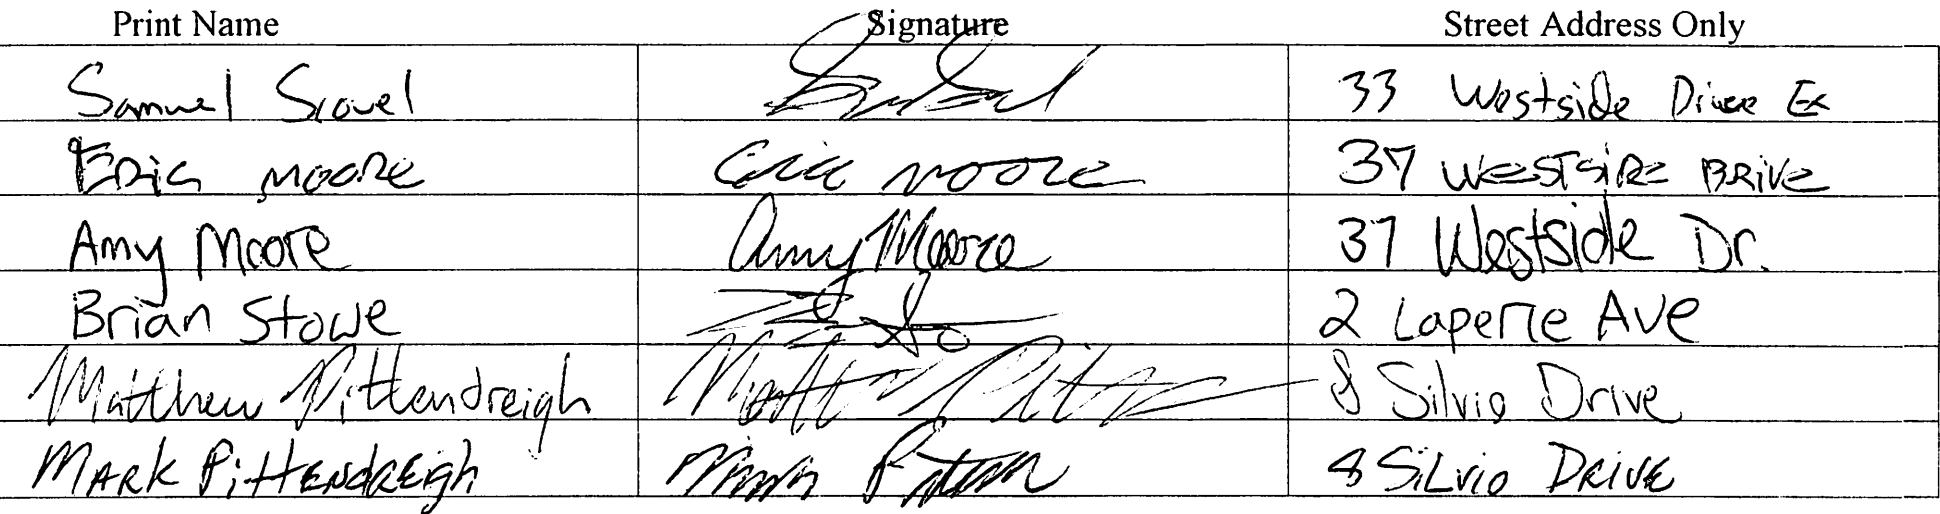 Print Name Signature Street Address Only
Samuel Scovel 33 Westside Drive Ex
Eric Moore Eric Moore 37 Westside Drive
Amy Moore Amy Moore 37 Westside Dr.
Brian Stowe 2 Laperle Ave
Matthew Pittendreigh 8 Silvio Drive
Mark Pittendreigh 8 Silvio Drive